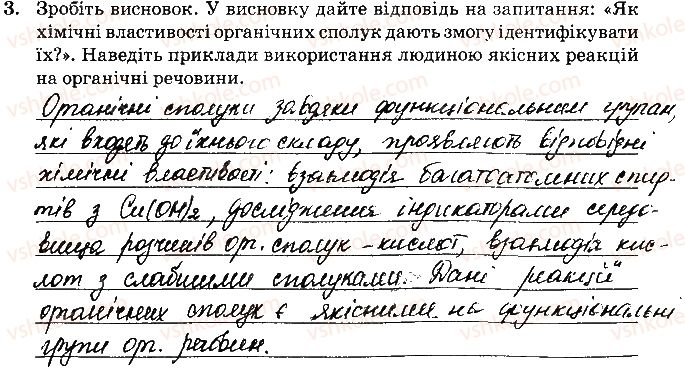 3. Зробіть висновок. У висновку дайте відповідь на запитання: «Як
хімічні властивості органічних сполук дають змогу ідентифікувати
їх?». Наведіть приклади використання людиною якісних реакцій
на органічні речовини.
Органічні сполуки завдяки функціональним групам,
які входять до їхнього складу, проявляють відповідні
хімічні властивості: взаємодія багатоатомних спир-
тів з Cu(OH)2, дослідження індикаторами середо-
вища розчинів орг. сполук - кислот, взаємодія кис-
лот з слабшими сполуками. Дані реакції
органічних сполук є якісними на функціональні
групи орг. речовин.